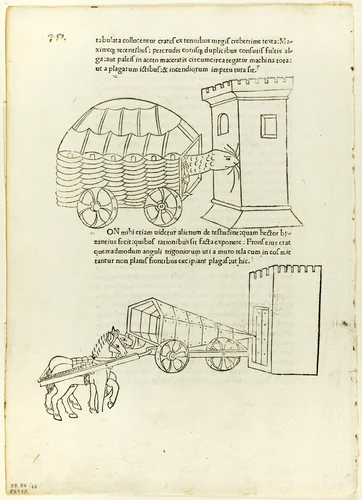 tabulata collocentur crates ex tenuibus uirgis creberrime texta: Ma
ximeq; recentibus: percrudis coriisq; duplicibus consutis fultis al
ga: aut paleis in aceto maceratis circumcirca tegatur machina tota:
ut a plagarum ictibus: & incendiorum impetu tuta sit.
ON mihi etiam uidetur alienum de testudine: quam hector by
zantius fecit: quibus rationibus sit facta exponere: Frons eius erat
quemadmodum anguli trigoniorum uti a muro tela cum in eos mit
tantur non planis frontibus excipiant plagas: ut hic.